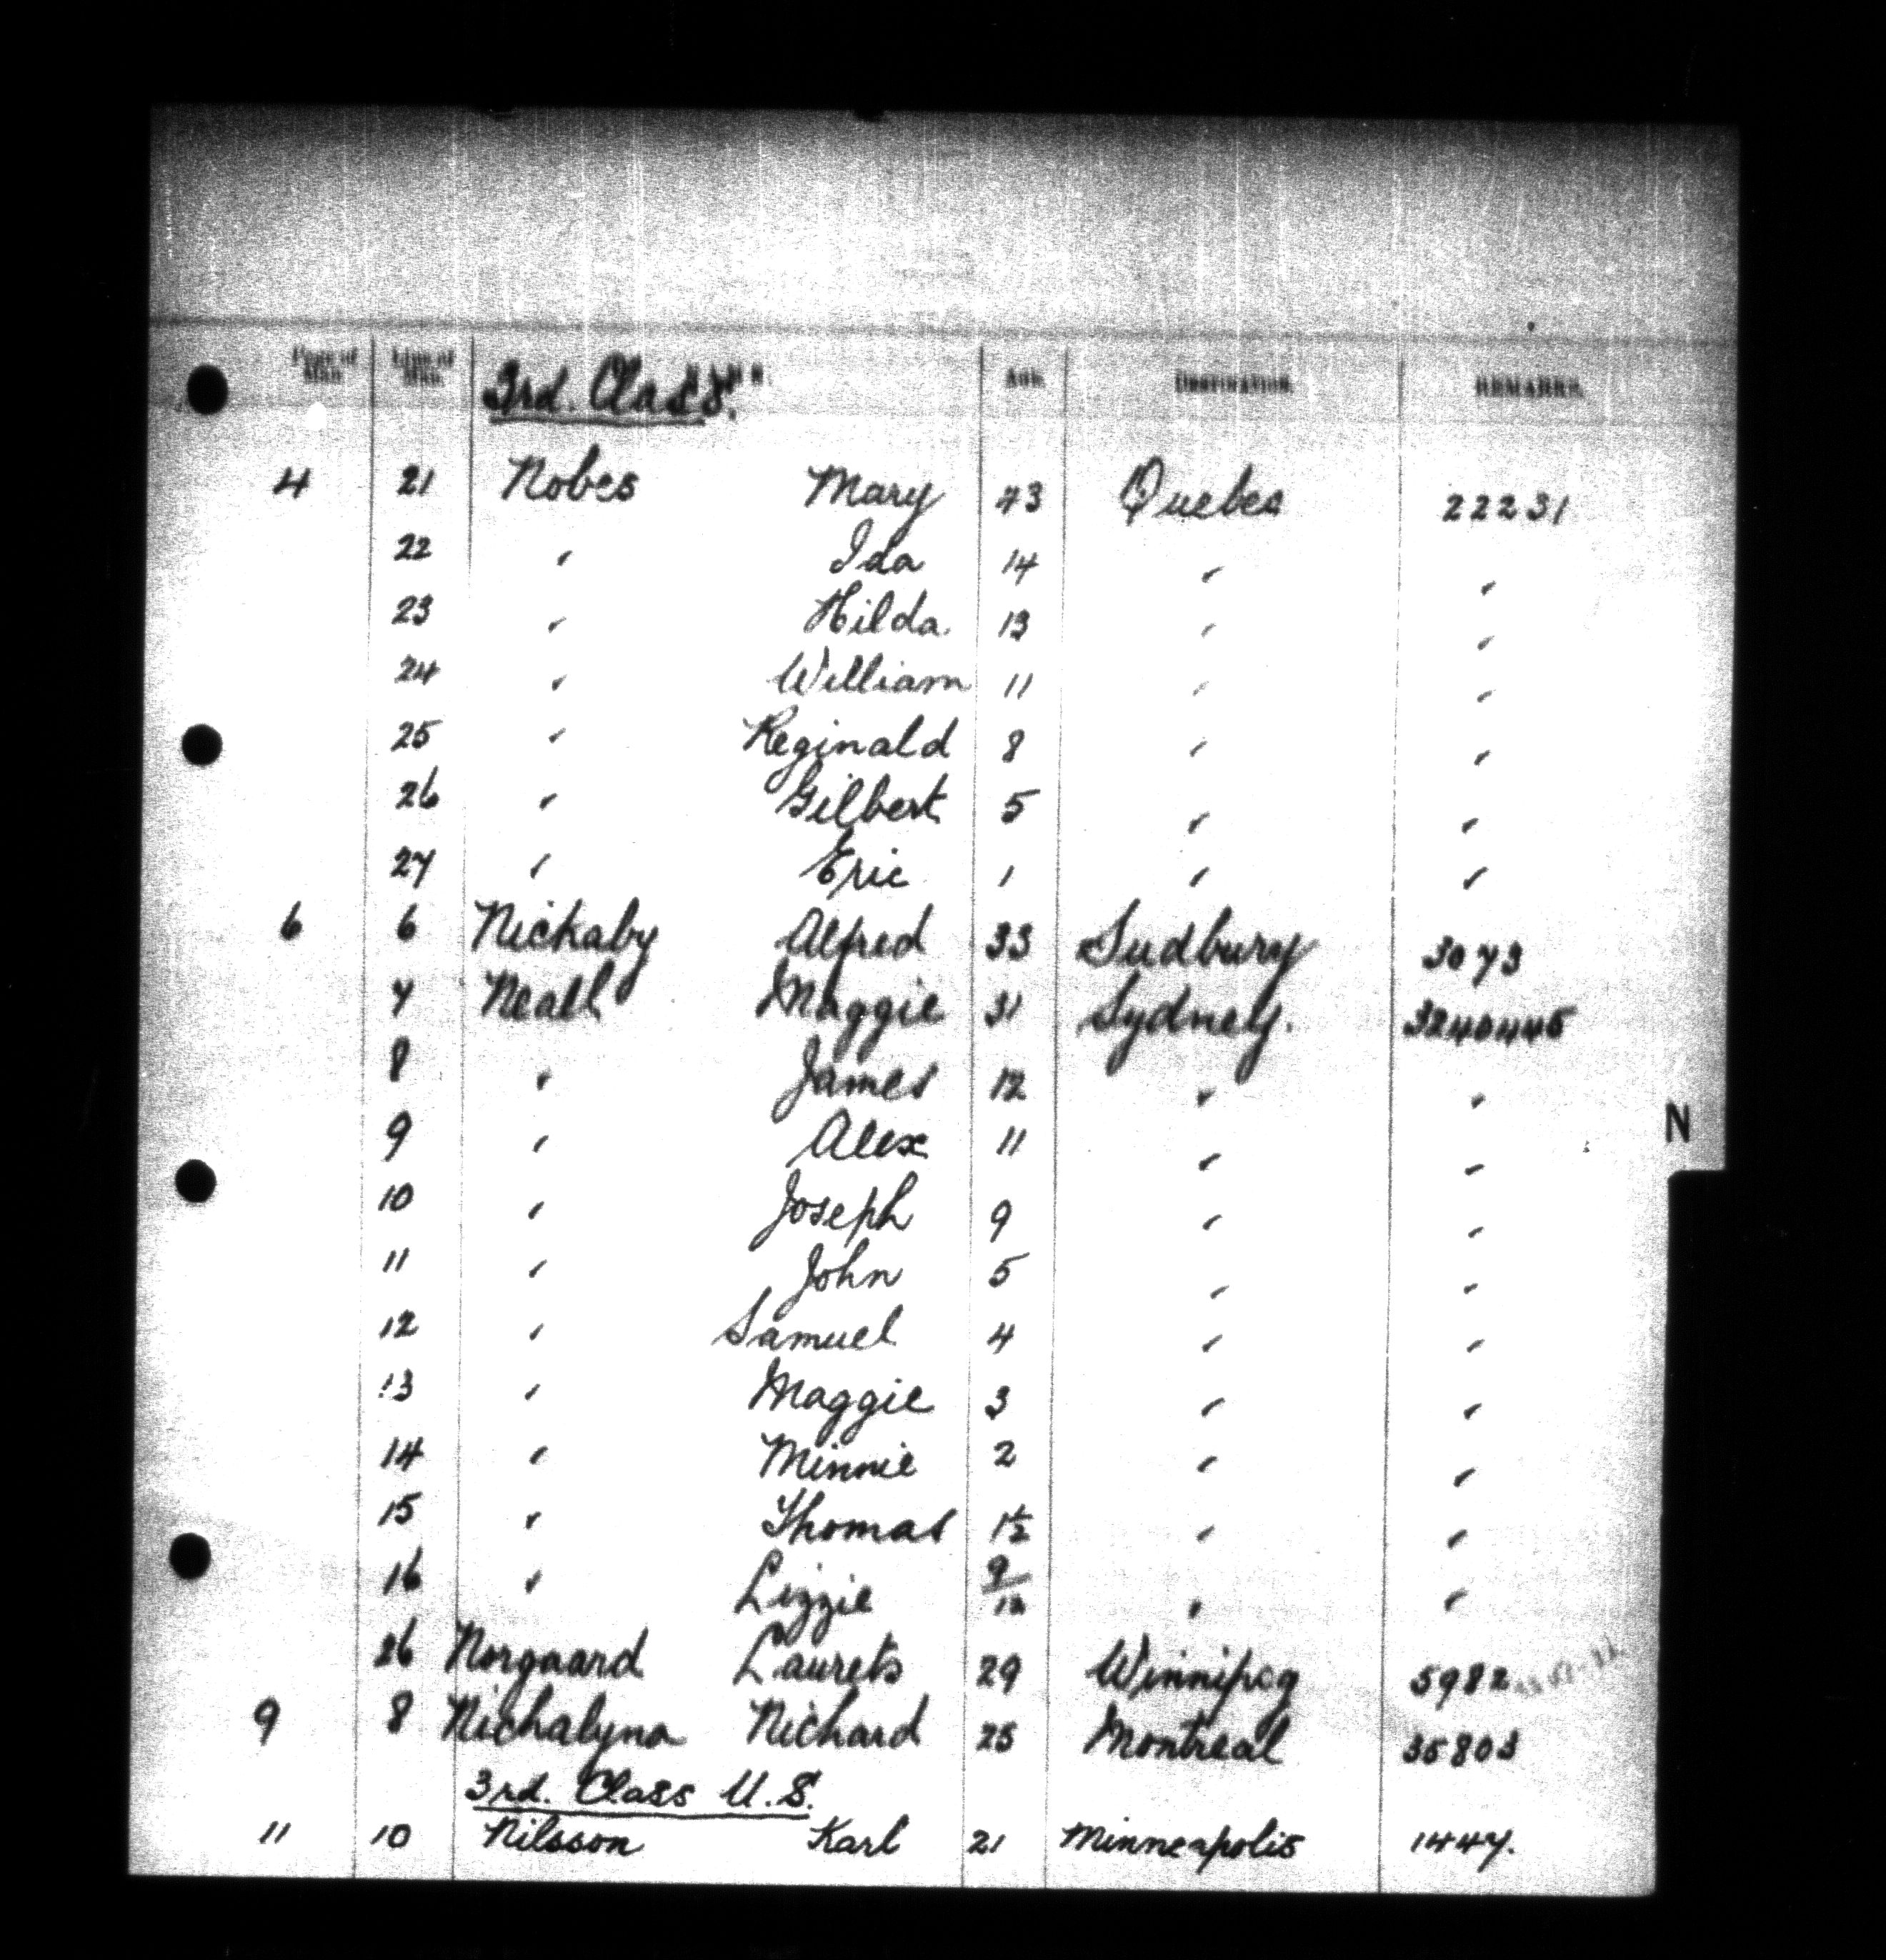 Page of Man. Line of Man. 3rd. Class. Age. Destination. REMARKS.
4 21 Nobes Mary 43 Quebec 22231
22 " Ida 14 " "
23 " Hilda 13 " "
24 " William 11 " "
25 " Reginald 8 " "
26 " Gilbert 5 " "
27 " Eric 1 " "
6 6 Nickaby Alfred 33 Sudbury 3073
7 Neall Maggie 31 Sydney. 3240445
8 " James 12 " "
9 " Alex 11 " "
N
10 " Joseph 9 " "
11 " John 5 " "
12 " Samuel 4 " "
13 " Maggie 3 " "
14 " Minnie 2 " "
15 " Thomas 1½ " "
16 " Lizzie 9/12 " "
26 Norgaard Laurets 29 Winnipeg 5982
9 8 Nichalyna Nichard 25 Montreal 35803
3rd. Class U.S.
11 10 Nilsson Karl 21 Minneapolis 1447.